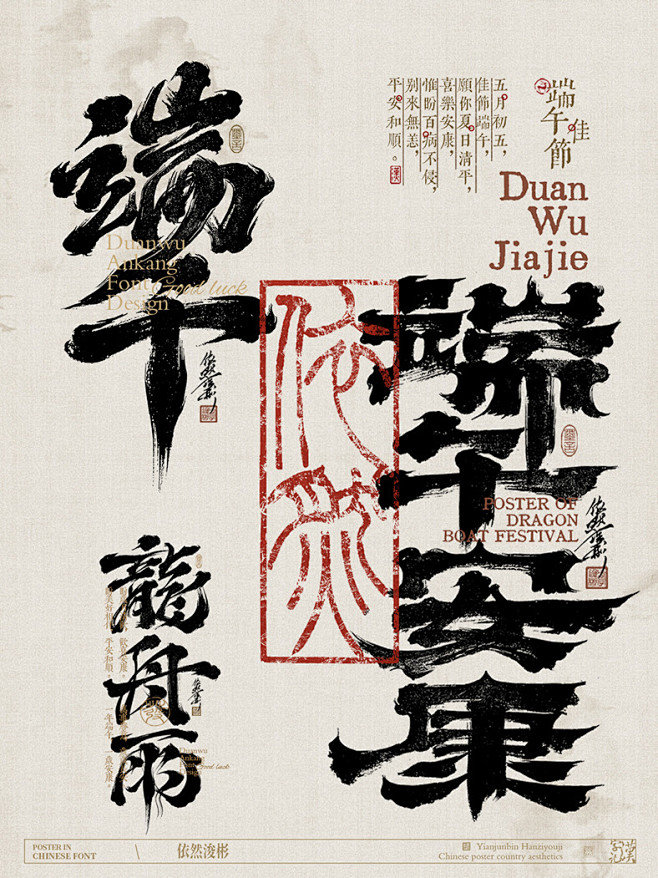 端午
Duanwu
Ankang
Font
Design
Good luck
五月初五，
佳節端午，
願你夏日清平，
喜樂安康，
惟盼百病不侵，
别來無恙，
平安和順。
端午佳節
Duan
Wu
Jiajie
依然
端午安康
POSTER OF
DRAGON
BOAT FESTIVAL
龍舟雨
平安和順。
一年端午
一歲安康。
Duanwu
Ankang
Font
Design
Good luck
POSTER IN
CHINESE FONT
\
依然浚彬
Yianjunbin Hanziyouji
Chinese poster country aesthetics